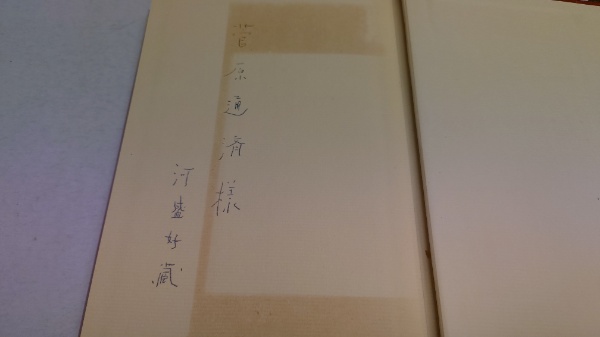 菅原通済様
河盛好蔵